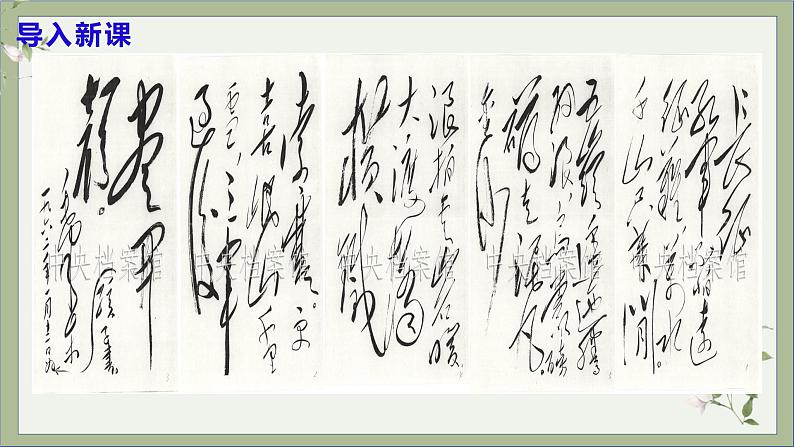 导入新课
长征
红军不怕远
征难万水
千山只等闲
五岭逶迤腾
细浪乌蒙磅
礴走泥丸。
金沙
浪拍 暖
大渡桥
横铁
索寒。更
喜岷山千里
雪，三军
过后
尽开
颜。
毛泽东
一九六二年 月
中央档案馆
中央档案馆
中央档案馆
中央档案馆
中央档案馆